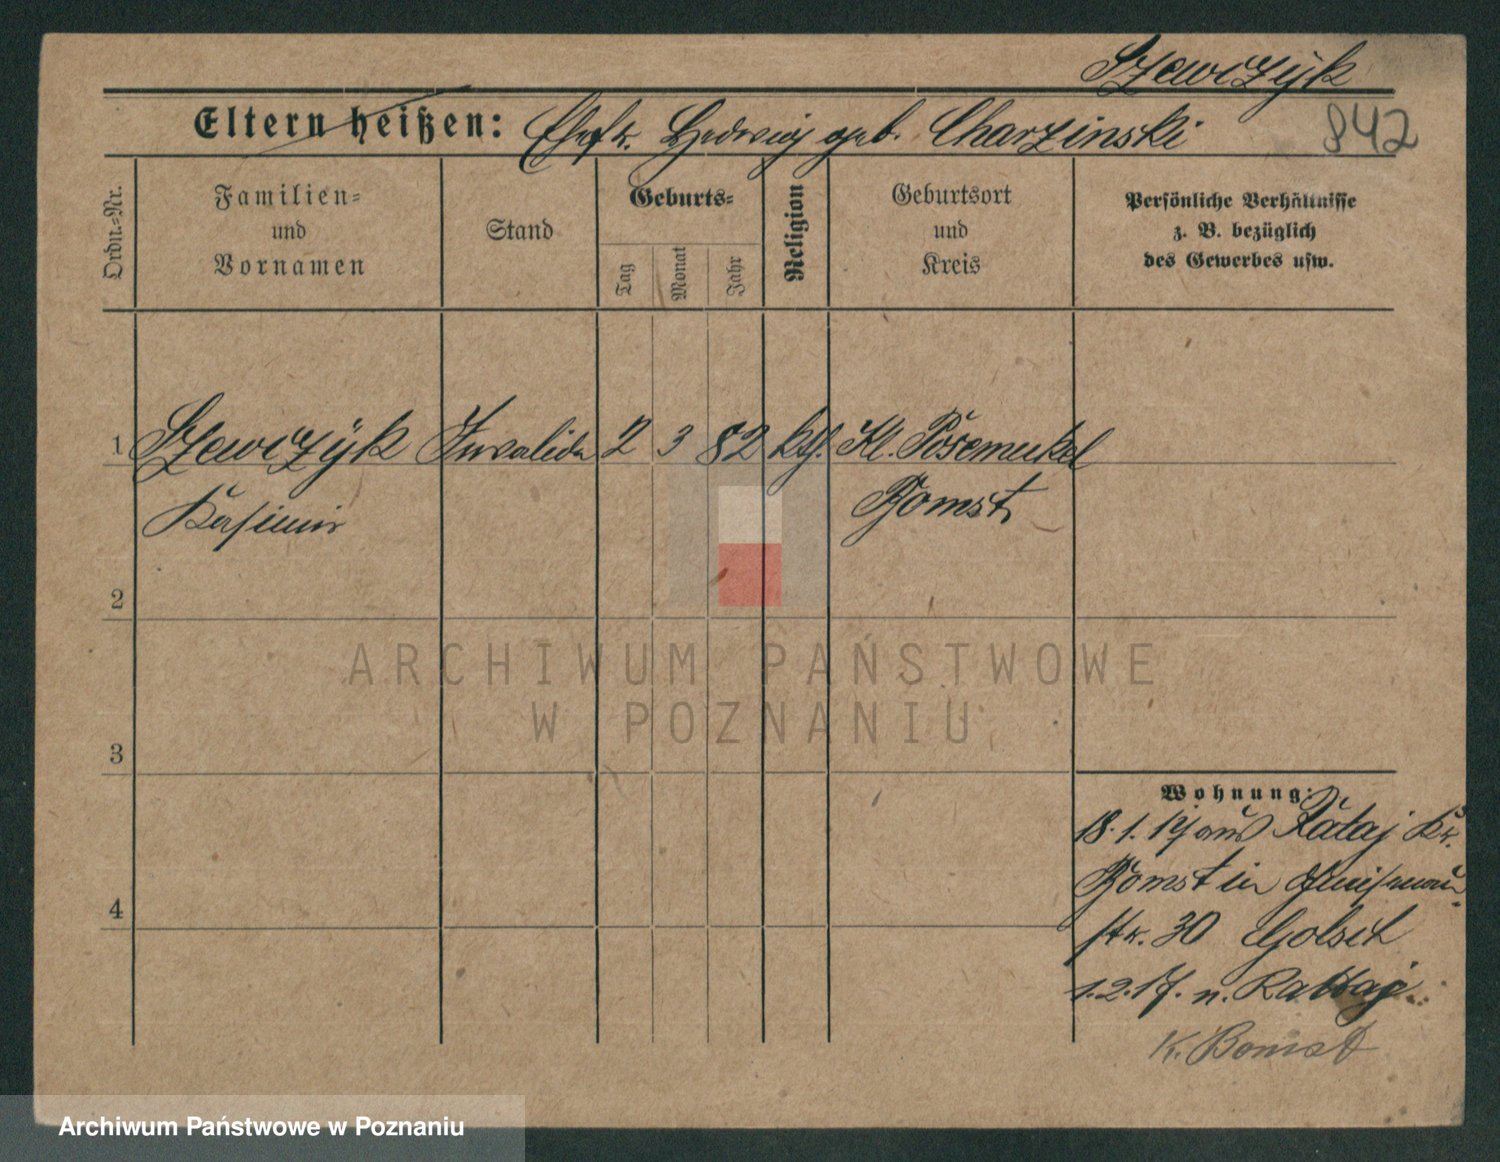 Szewczÿk
Eltern heißen: Ehefr. Hedwig geb. Charzinski
842
Ordn.-Nr.
Familien-
und
Vornamen
Stand
Geburts-
Tag
Monat
Jahr
Religion
Geburtsort
und
Kreis
Persönliche Verhältnisse
z. B. bezüglich
des Gewerbes usw.
1 Szewczÿk Invalide 2 3 82 kth. Kl. Posemukel
Kasimir Bomst
2
ARCHIWUM PAŃSTWOWE
W POZNANIU
3
Wohnung:
18.1.17 aus Rataj Kr.
Bomst in Gneisenau-
4
str. 30
1.2.17. n. Rattaj
K. Bomst
Archiwum Państwowe w Poznaniu